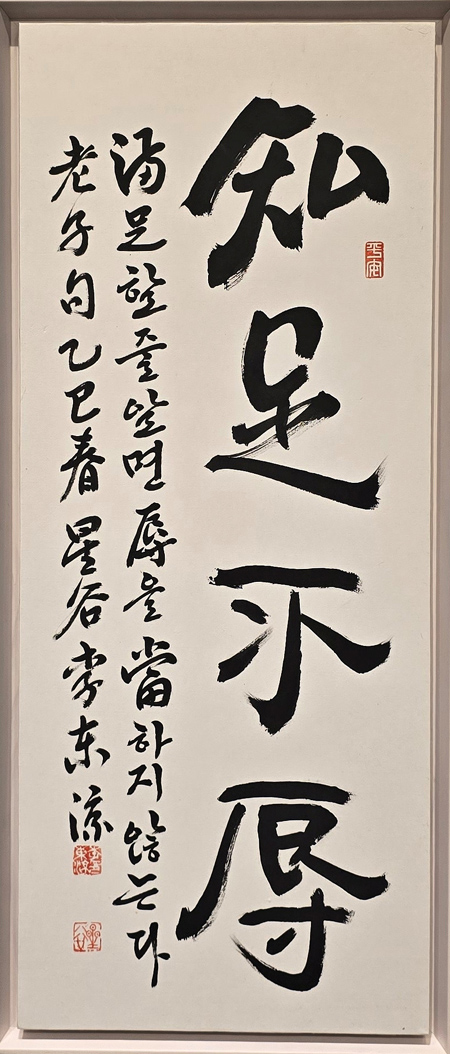 知足不辱
滿足할줄알면辱을當하지않는다
老子句乙巳春星谷李东流
平安